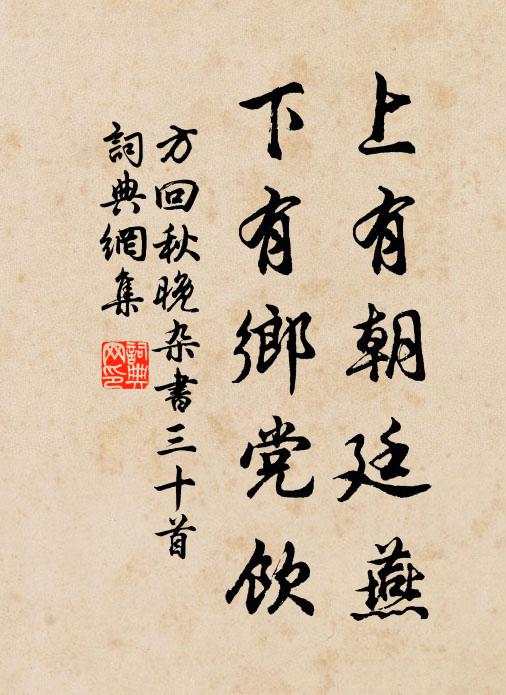 上有朝廷燕
下有鄉党飲
方回秋晚杂書三十首
詞典網集
詞典网印